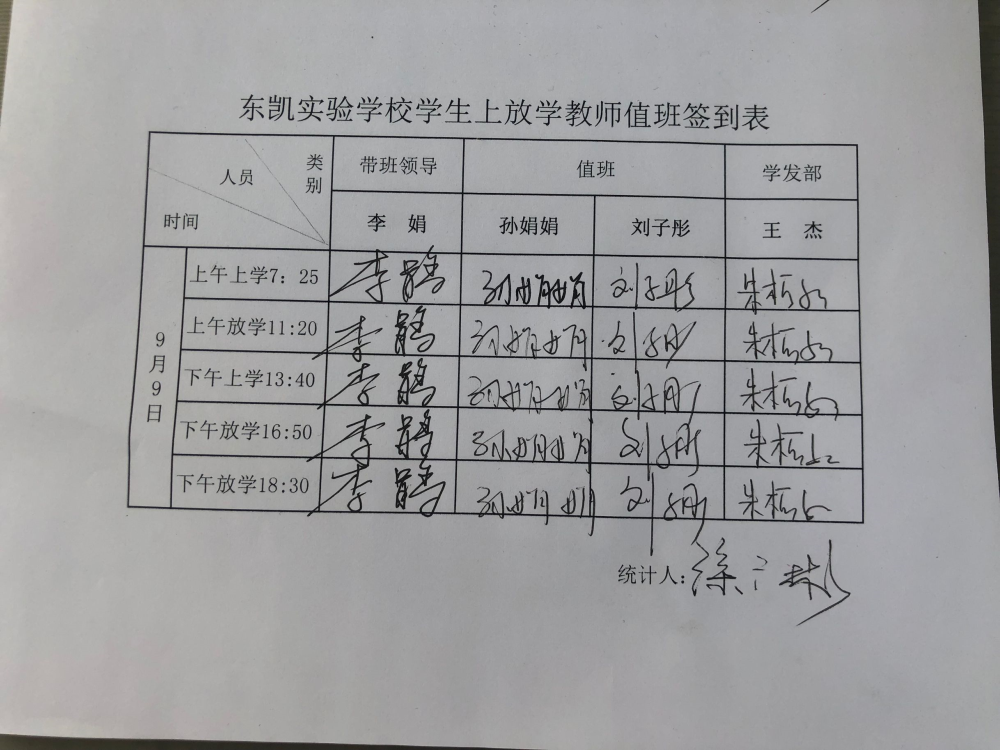 东凯实验学校学生上放学教师值班签到表
人员 类别 带班领导 值班 学发部
时间 李 娟 孙娟娟 刘子彤 王 杰
9月9日
上午上学7：25 李 孙娟娟 刘子彤 朱
上午放学11:20 李 孙娟娟 刘子彤 朱
下午上学13:40 李 孙娟娟 刘子彤 朱
下午放学16:50 李 孙娟娟 刘子彤 朱
下午放学18:30 李 孙娟娟 刘子彤 朱
统计人：徐